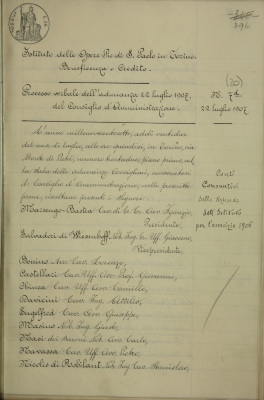 396
Istituto delle Opere Pie di S. Paolo in Torino
Beneficenza e Credito.
Processo verbale dell'adunanza 22 luglio 1907,
del Consiglio d'Amministrazione.
N. 7
22 luglio 1907
L'anno millenovecentosette, addì ventidue
del mese di luglio, alle ore quindici, in Torino, via
Monte di Pietà, numero trentadue, piano primo, nel
la sala delle adunanze Consigliari,
il Consiglio d'Amministrazione, nelle prescritte
forme, risultano presenti i Signori:
Conti
Consuntivi
delle Aziende
dell'Istituto
per l'esercizio 1906
Marsengo-Bastia
Presidente,
Salvadori di Wiesenhoff Nob. Ing. Cav. Uff. Giacomo,
Vicepresidente,
Bonino Avv. Cav. Lorenzo,
Castellari Cav. Uff. Avv. Prof. Giovanni,
Cav. Uff. Avv. Camillo,
Davicini Cav. Ing. Attilio,
Cav. Avv. Giuseppe,
Masino Nob. Ing. Guido,
Masi dei Baroni Nob. Avv. Carlo,
Ravassa Cav. Uff. Avv. Pietro,
Nicolis di Robilant Nob. Ing. Cav. Stanislao,